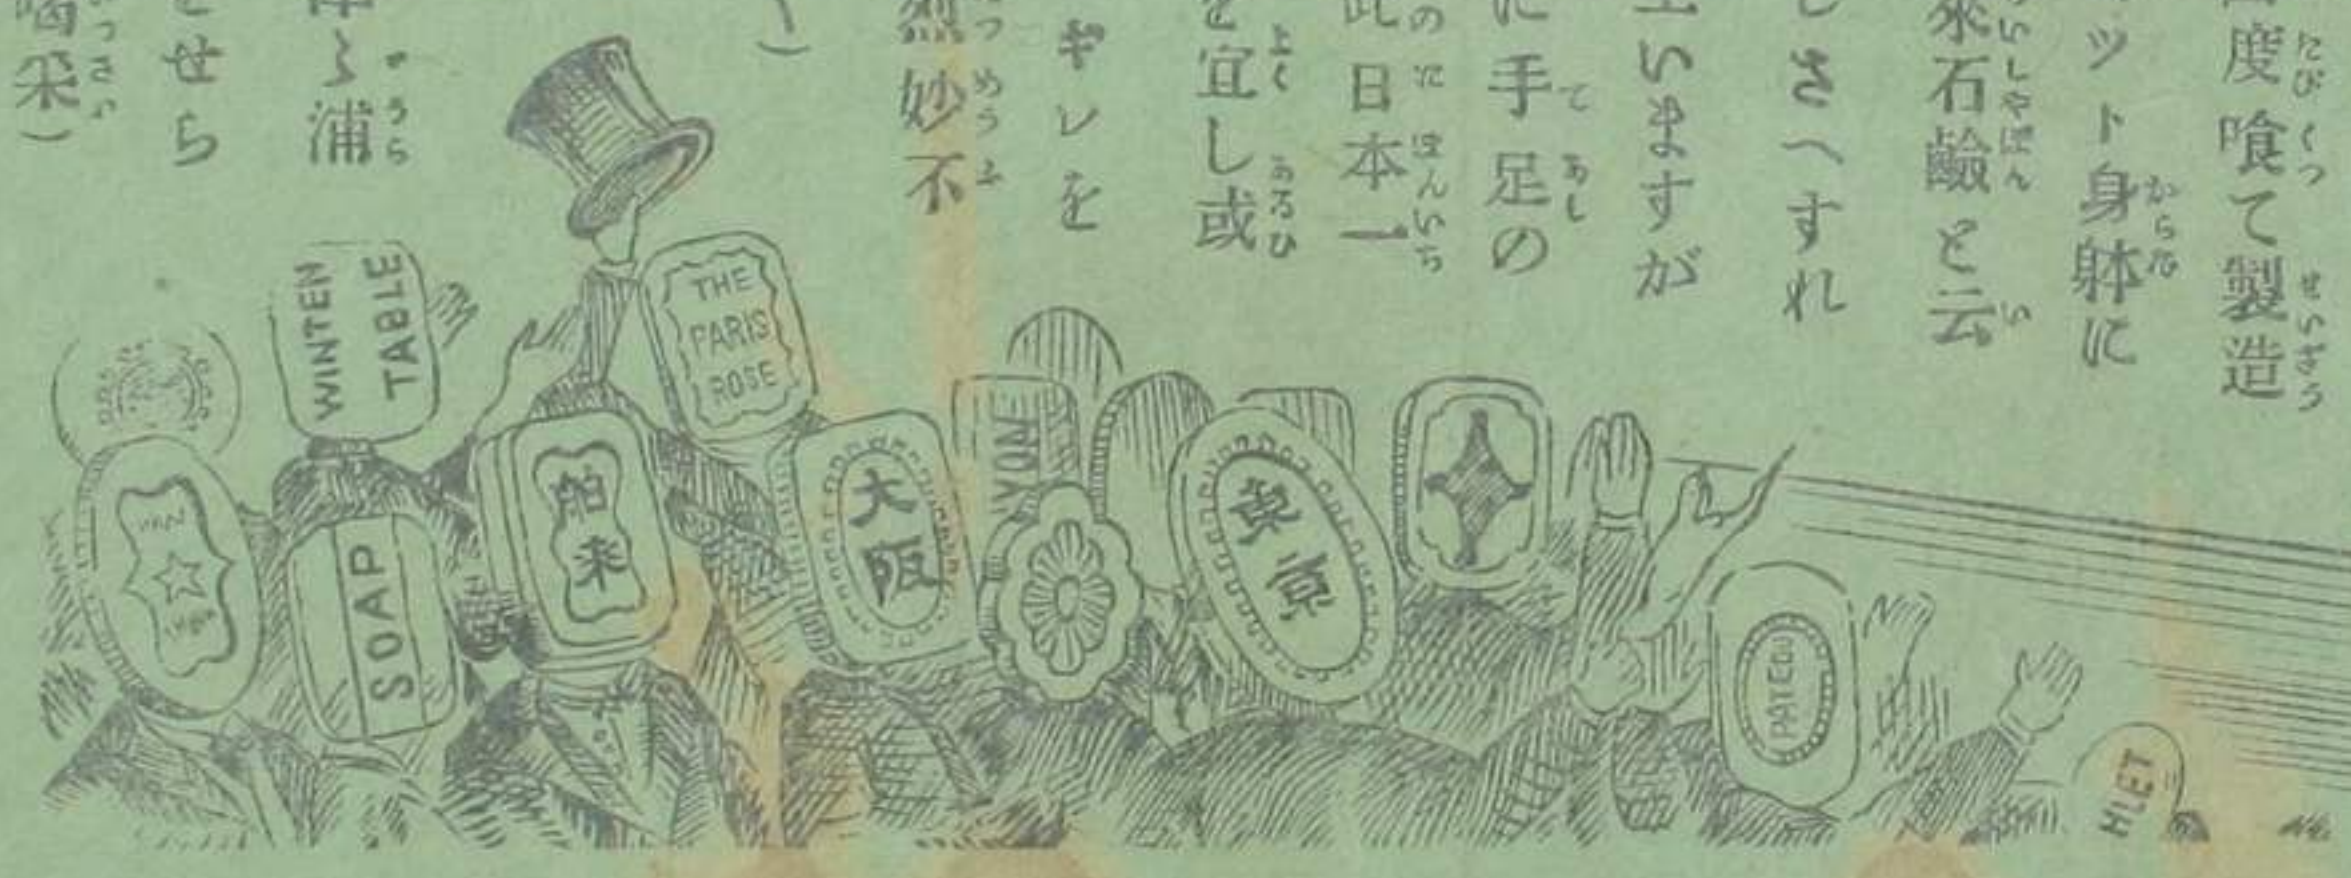 度喰て製造
ット身躰に
來石鹼と云
しさへすれ
いますが
に手足の
此日本一
を宜し或
ギレを
烈妙不
）
浦
せら
喝采）
WINTEN
TABLE
THE
PARIS
ROSE
SOAP
舶来
大阪
YON
東京
HLET